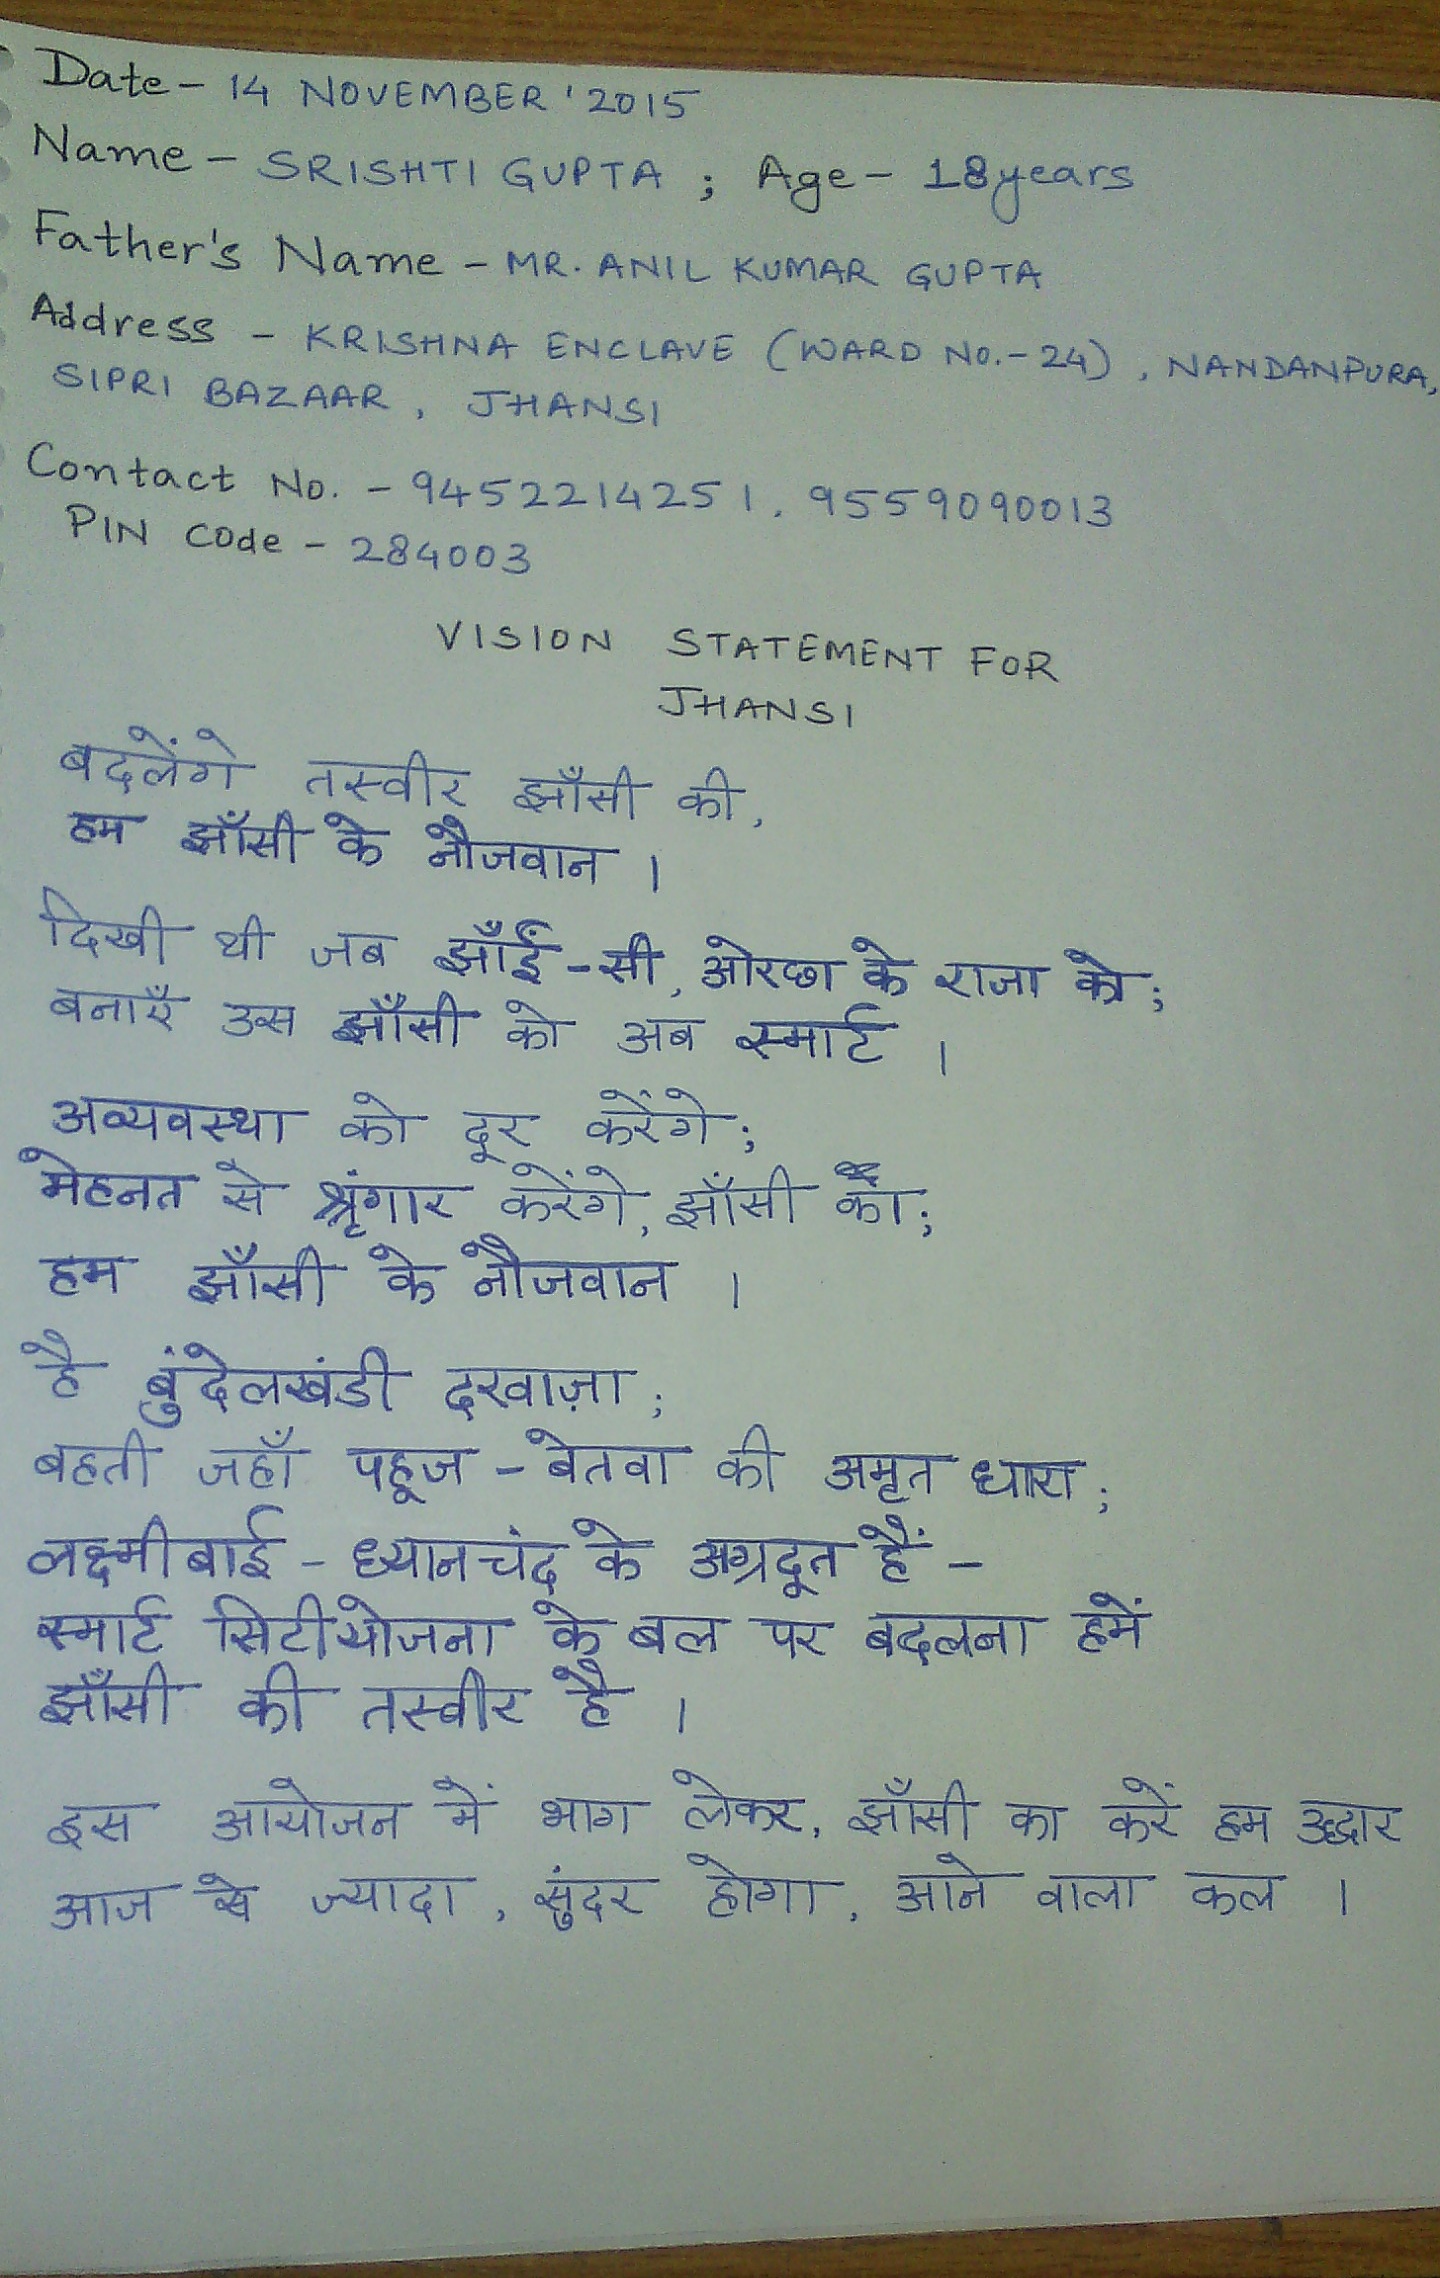 Date - 14 NOVEMBER '2015
Name - SRISHTI GUPTA ; Age - 18years
Father's Name - MR. ANIL KUMAR GUPTA
Address - KRISHNA ENCLAVE (WARD NO.-24), NANDANPURA,
SIPRI BAZAAR, JHANSI
Contact No. - 9452214251, 9559090013
PIN code - 284003
VISION STATEMENT FOR
JHANSI
बदलेंगे तस्वीर झाँसी की,
हम झाँसी के नौजवान ।
दिखी थी जब झाँई-सी, ओरछा के राजा को;
बनाएँ उस झाँसी को अब स्मार्ट ।
अव्यवस्था को दूर करेंगे;
मेहनत से श्रृंगार करेंगे, झाँसी का;
हम झाँसी के नौजवान ।
है बुंदेलखंडी दरवाज़ा;
बहती जहाँ पहूज - बेतवा की अमृत धारा;
लक्ष्मीबाई - ध्यानचंद के अग्रदूत हैं -
स्मार्ट सिटी योजना के बल पर बदलना हमें
झाँसी की तस्वीर है ।
इस आयोजन में भाग लेकर, झाँसी का करें हम उद्धार
आज से ज्यादा, सुंदर होगा, आने वाला कल ।